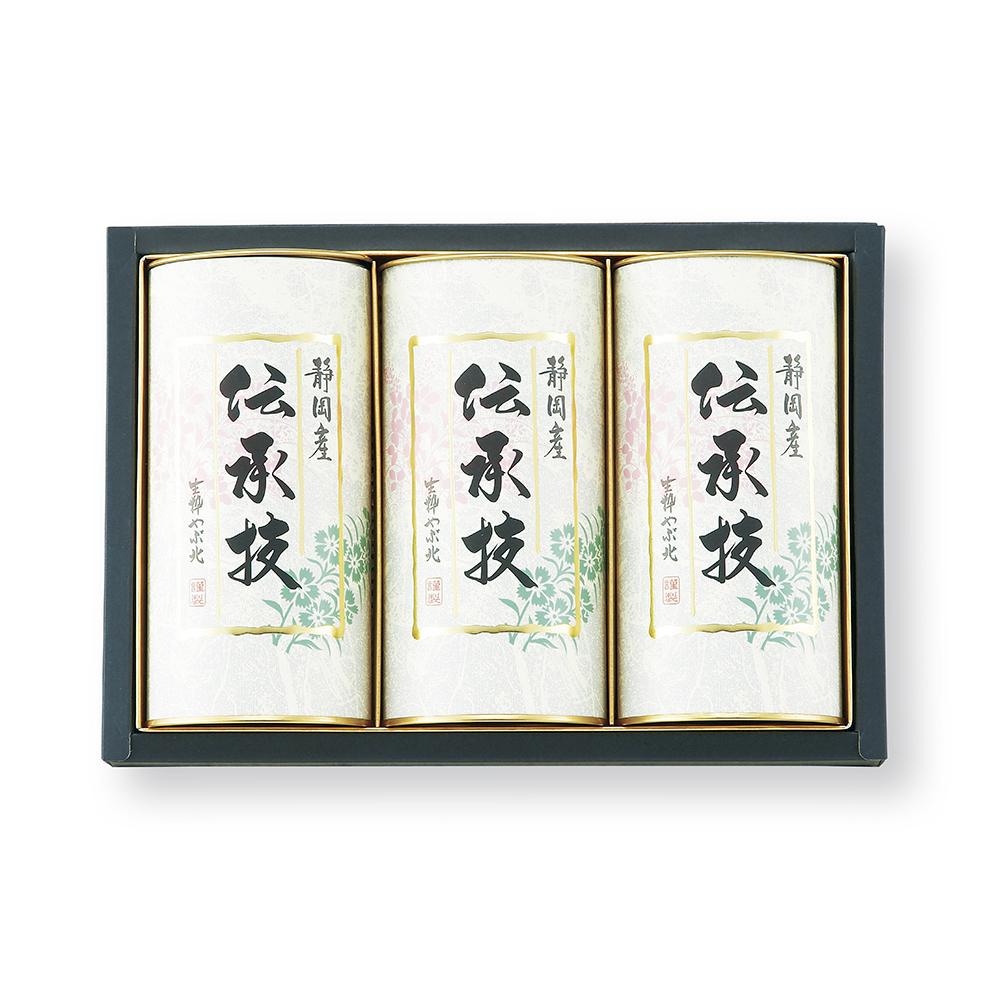 静岡産
伝承技
生粋やぶ北
謹製
静岡産
伝承技
生粋やぶ北
謹製
静岡産
伝承技
生粋やぶ北
謹製